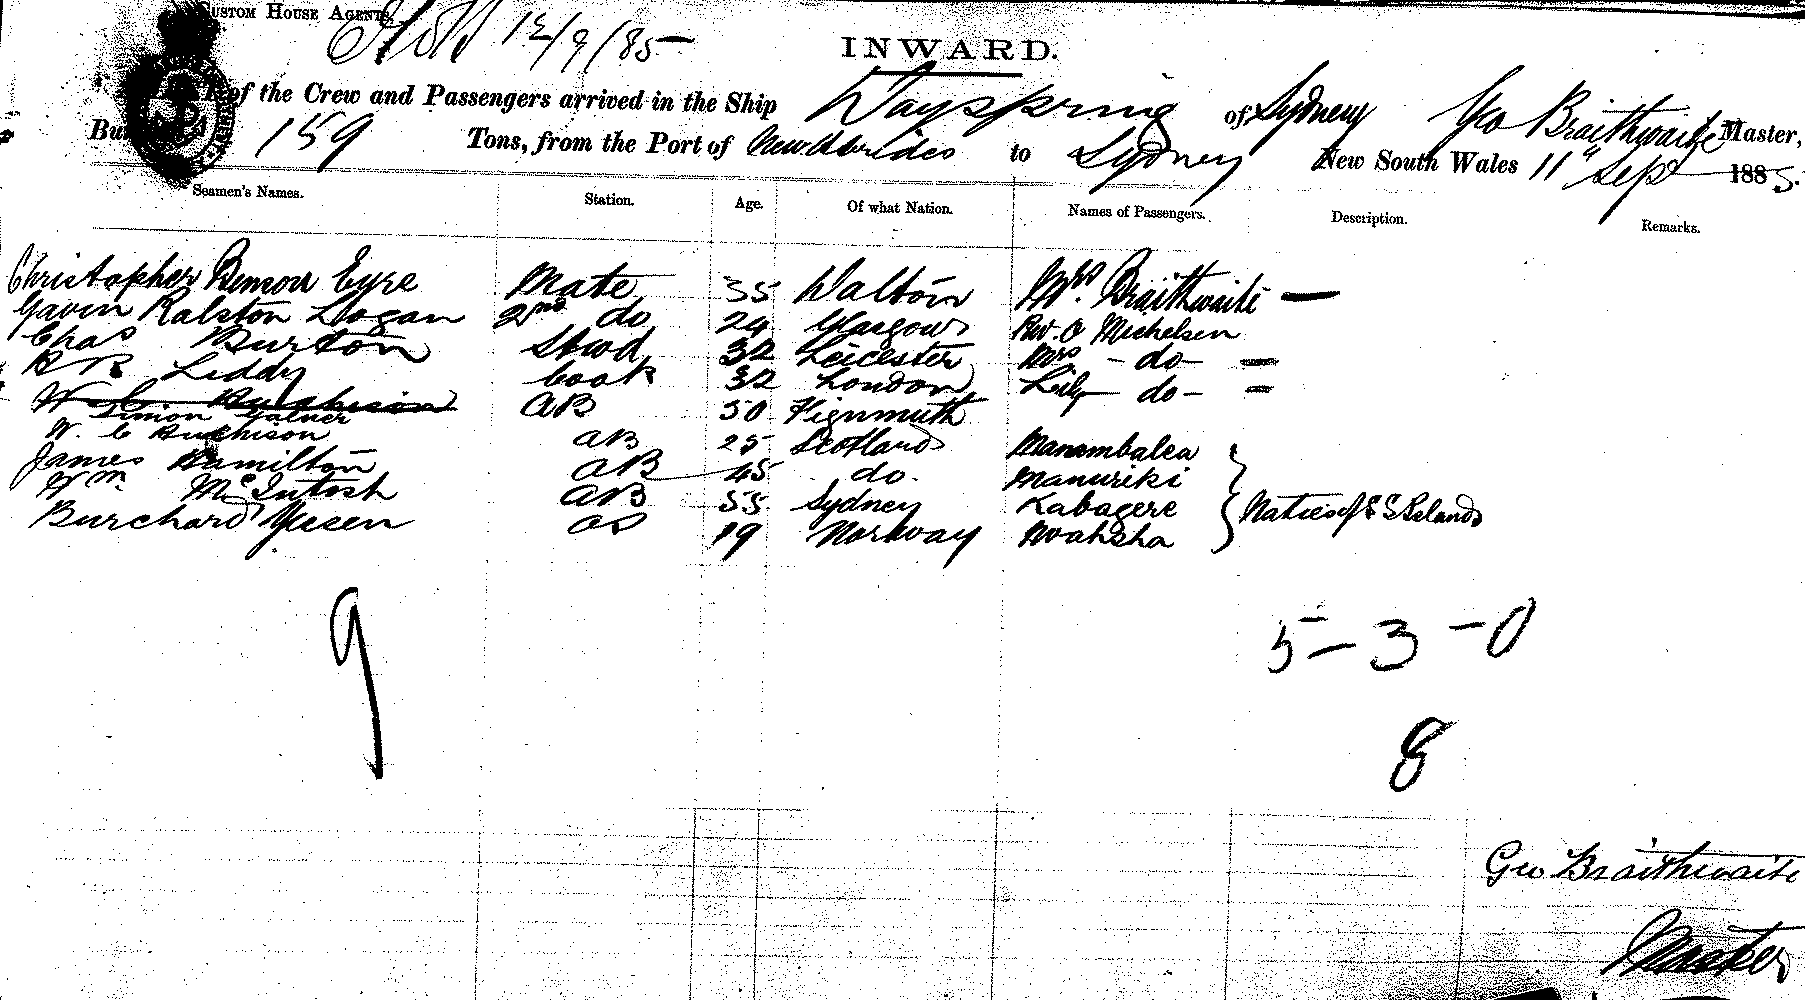 Custom House Agents.
12/9/85
INWARD.
of the Crew and Passengers arrived in the Ship Dayspring of Sydney Geo Braithwaite Master,
159 Tons, from the Port of New Hebrides to Sydney New South Wales 11" Sep 1885.
Seamen's Names. Station. Age. Of what Nation. Names of Passengers. Description. Remarks.
Christopher Eyre Mate 35 Walton Mrs. Braithwaite —
Gavin Ralston Logan 2nd do 24 Glasgow Rev. O Michelsen
Chas Burton Stwd 32 Leicester Mrs - do - =
R B Liddy Cook 32 London Lily do - =
W C Hutchison AB 50
Simon
W. C Hutchison AB 25 Scotland Manambalea
James Hamilton AB 45 do. Manuriki
Wm. McIntosh AB 55 Sydney Kabagere Natives of S S Islands
Burchard OS 19 Norway
9
5 - 3 - 0
8
Geo Braithwaite
Master